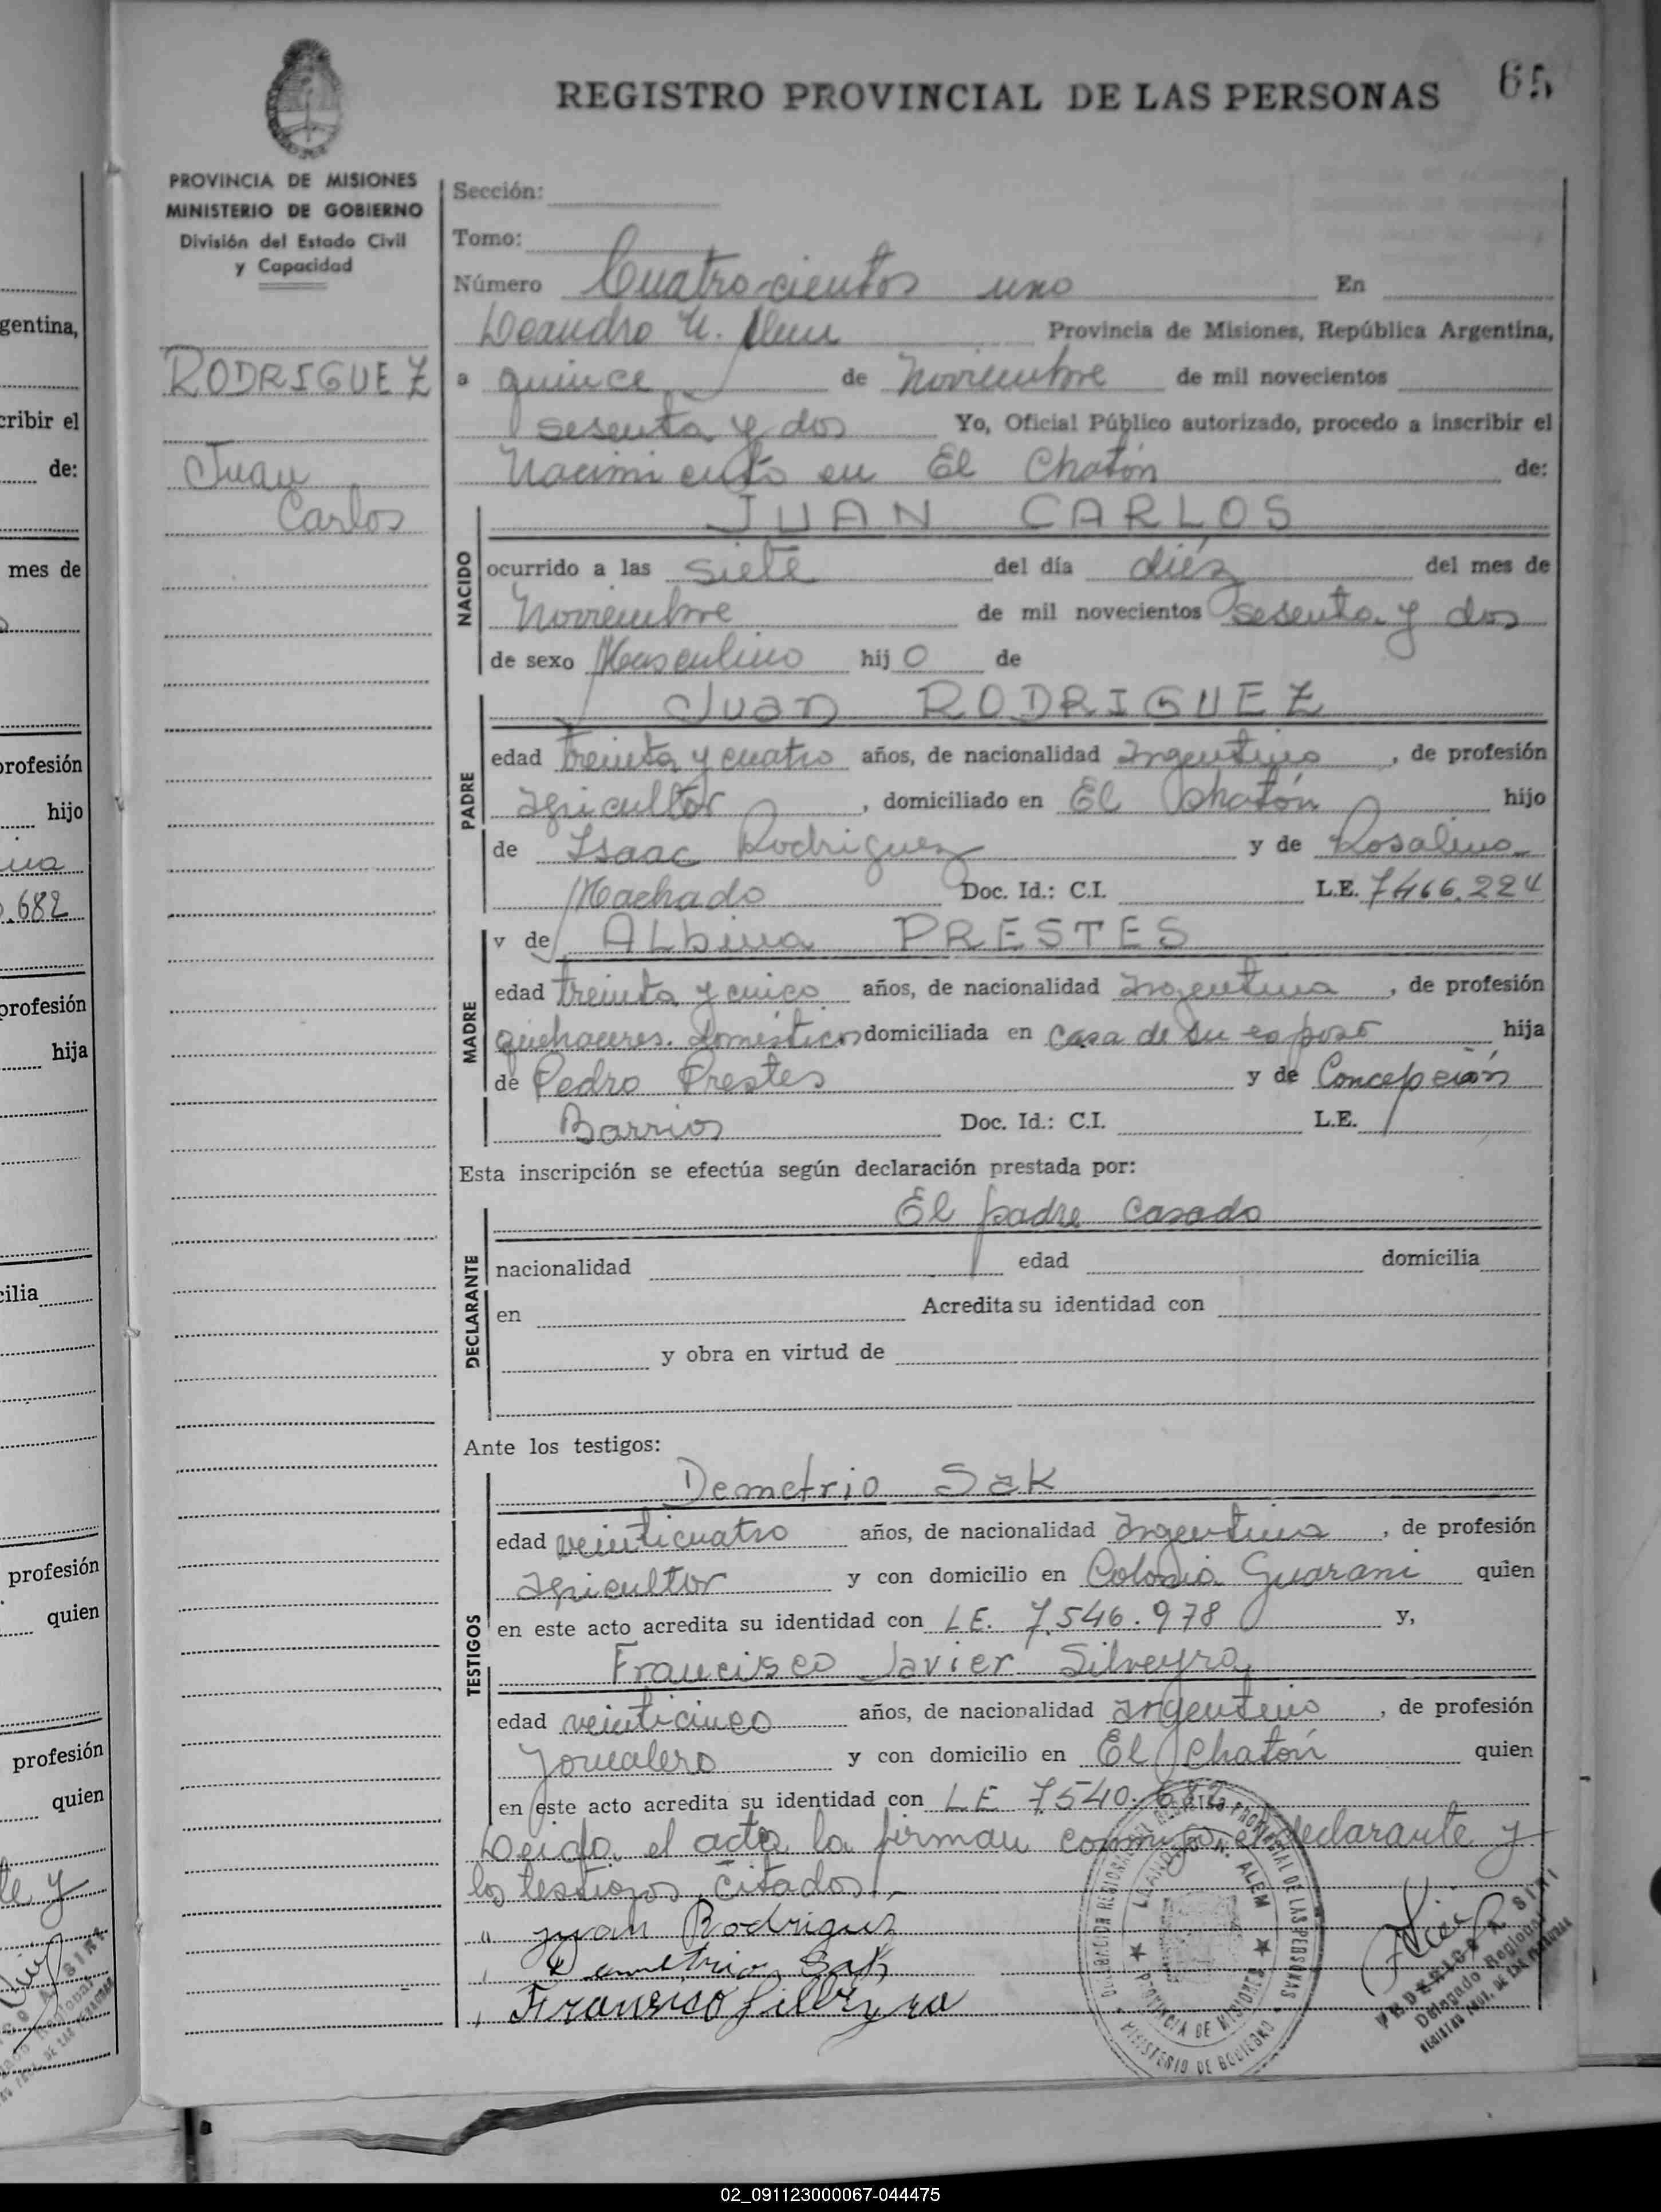 REGISTRO PROVINCIAL DE LAS PERSONAS 65
PROVINCIA DE MISIONES
MINISTERIO DE GOBIERNO
División del Estado Civil
y Capacidad
RODRIGUEZ
Juan
Carlos
Sección:
Tomo:
Número Cuatrocientos uno En
Leandro N. Alem Provincia de Misiones, República Argentina,
a quince de Noviembre de mil novecientos
sesenta y dos Yo, Oficial Público autorizado, procedo a inscribir el
Nacimiento en El Chatón de:
NACIDO
JUAN CARLOS
ocurrido a las siete del día diéz del mes de
Noviembre de mil novecientos sesenta y dos
de sexo Masculino hijo de
PADRE
Juan RODRIGUEZ
edad treinta y cuatro años, de nacionalidad Argentino, de profesión
agricultor, domiciliado en El Chatón hijo
de Isaac Rodriguez y de Rosalina
Machado Doc. Id.: C.I. L.E. 7466.224
MADRE
y de Albina PRESTES
edad treinta y cinco años, de nacionalidad Argentina, de profesión
quehaceres domésticos domiciliada en casa de su esposo hija
de Pedro Prestes y de Concepción
Barrios Doc. Id.: C.I. L.E.
Esta inscripción se efectúa según declaración prestada por:
DECLARANTE
El padre casado
nacionalidad edad domicilia
en Acredita su identidad con
y obra en virtud de
Ante los testigos:
TESTIGOS
Demetrio Sak
edad veinticuatro años, de nacionalidad Argentina, de profesión
agricultor y con domicilio en Colonia Guarani quien
en este acto acredita su identidad con LE. 7.546.978 y,
Francisco Javier Silveyra
edad veinticinco años, de nacionalidad argentino, de profesión
Jornalero y con domicilio en El Chatón quien
en este acto acredita su identidad con LE 7540.682
Leida el acta la firman conmigo el declarante y
los testigos citados.-
Juan Rodriguez
Demetrio Sak
Francisco Silveyra
LEANDRO N. ALEM
PROVINCIA DE MISIONES
MINISTERIO DE GOBIERNO
Delegado Regional
gentina,
cribir el
de:
mes de
profesión
hijo
.682
profesión
hija
cilia
profesión
quien
profesión
quien
te y
02_091123000067-044475